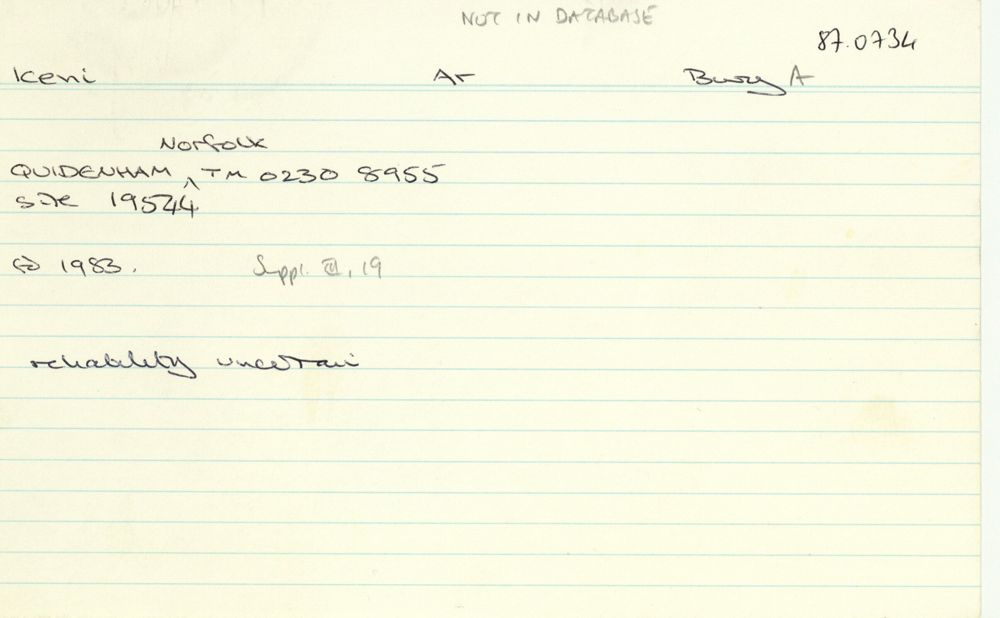 NOT IN DATABASE
87.0734
Iceni Ar Bury A
Norfolk
QUIDENHAM ^ TM 0230 8955
site 19544
1983.
Suppl. III, 19
reliability uncertain